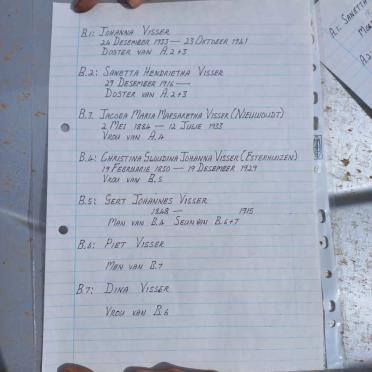 B.1: JOHANNA VISSER
24 DESEMBER 1933 — 23 OKTOBER 1961
DOGTER VAN A.2+3
B.2: SANETTA HENDRIETHA VISSER
29 DESEMBER 1916 —
DOGTER VAN A.2+3
B.3: JACOBA MARIA MARGARETHA VISSER (NIEUWOUDT)
2 MEI 1884 — 12 JULIE 1933
VROU VAN A.4
B.4: CHRISTINA GLOUDINA JOHANNA VISSER (ESTERHUIZEN)
19 FEBRUARIE 1850 — 19 DESEMBER 1929
VROU VAN B.5
B.5: GERT JOHANNES VISSER
1848 — 1915
MAN VAN B.4 SEUN VAN B.6+7
B.6: PIET VISSER
MAN VAN B.7
B.7: DINA VISSER
VROU VAN B.6
A.1: SANETTA